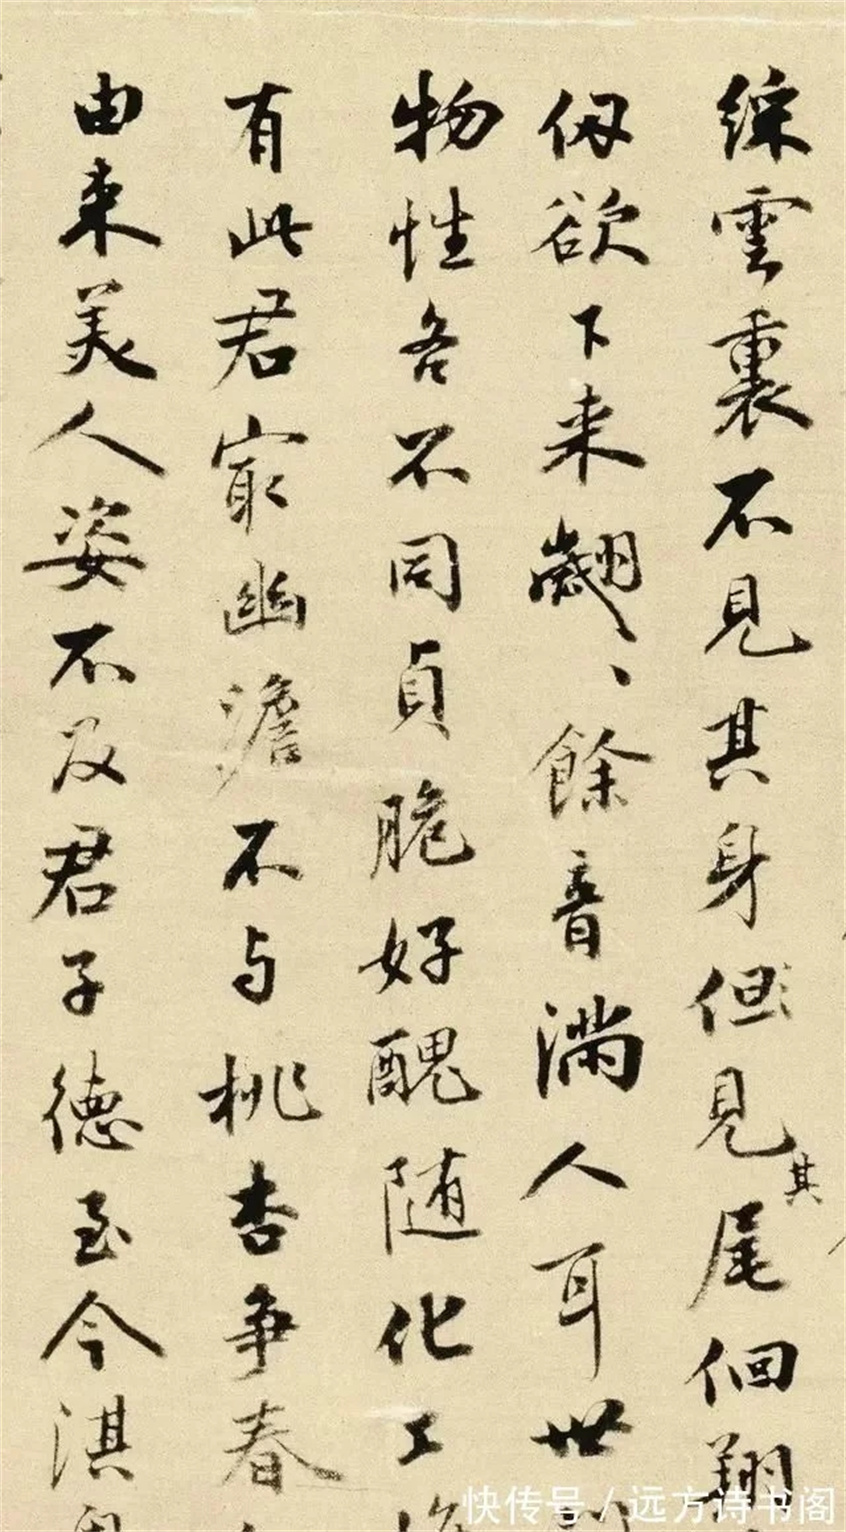 綵雲裏不見其身但見其尾佪翔
仞欲下來翽〻餘音滿人耳世
物性各不同貞脆好醜随化工
有此君家最幽澹不与桃杏争春
由来美人姿不及君子德至今淇
快传号 / 远方诗书阁